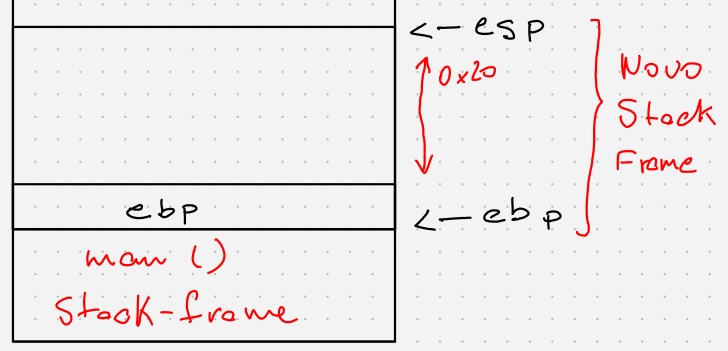 <— esp
0x20
Novo
Stack
Frame
ebp
<— ebp
main ()
Stack-frame